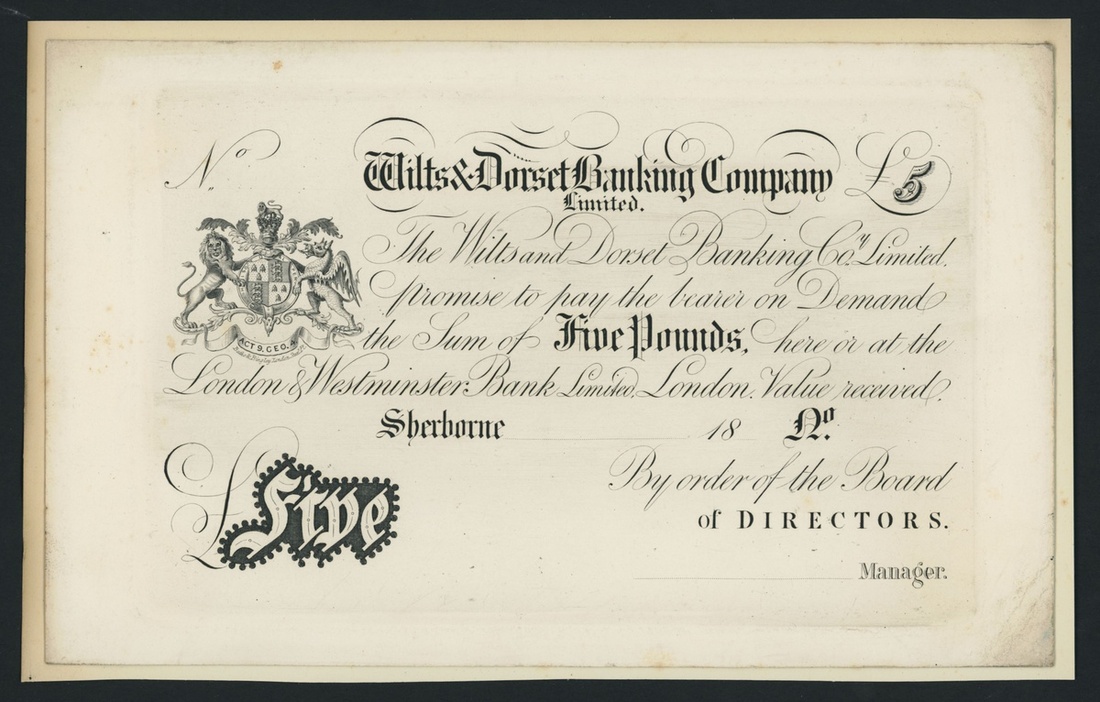 No.
Wilts & Dorset Banking Company £5
Limited.
The Wilts and Dorset Banking Coy. Limited.
promise to pay the bearer on Demand
the Sum of Five Pounds, here or at the
London & Westminster Bank Limited, London. Value received.
ACT 9. GEO. 4.
Sherborne 18 No.
By order of the Board
of DIRECTORS.
£ Five
Manager.